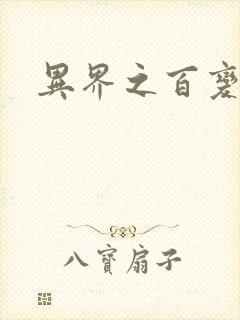 異界之百變
八寶扇子